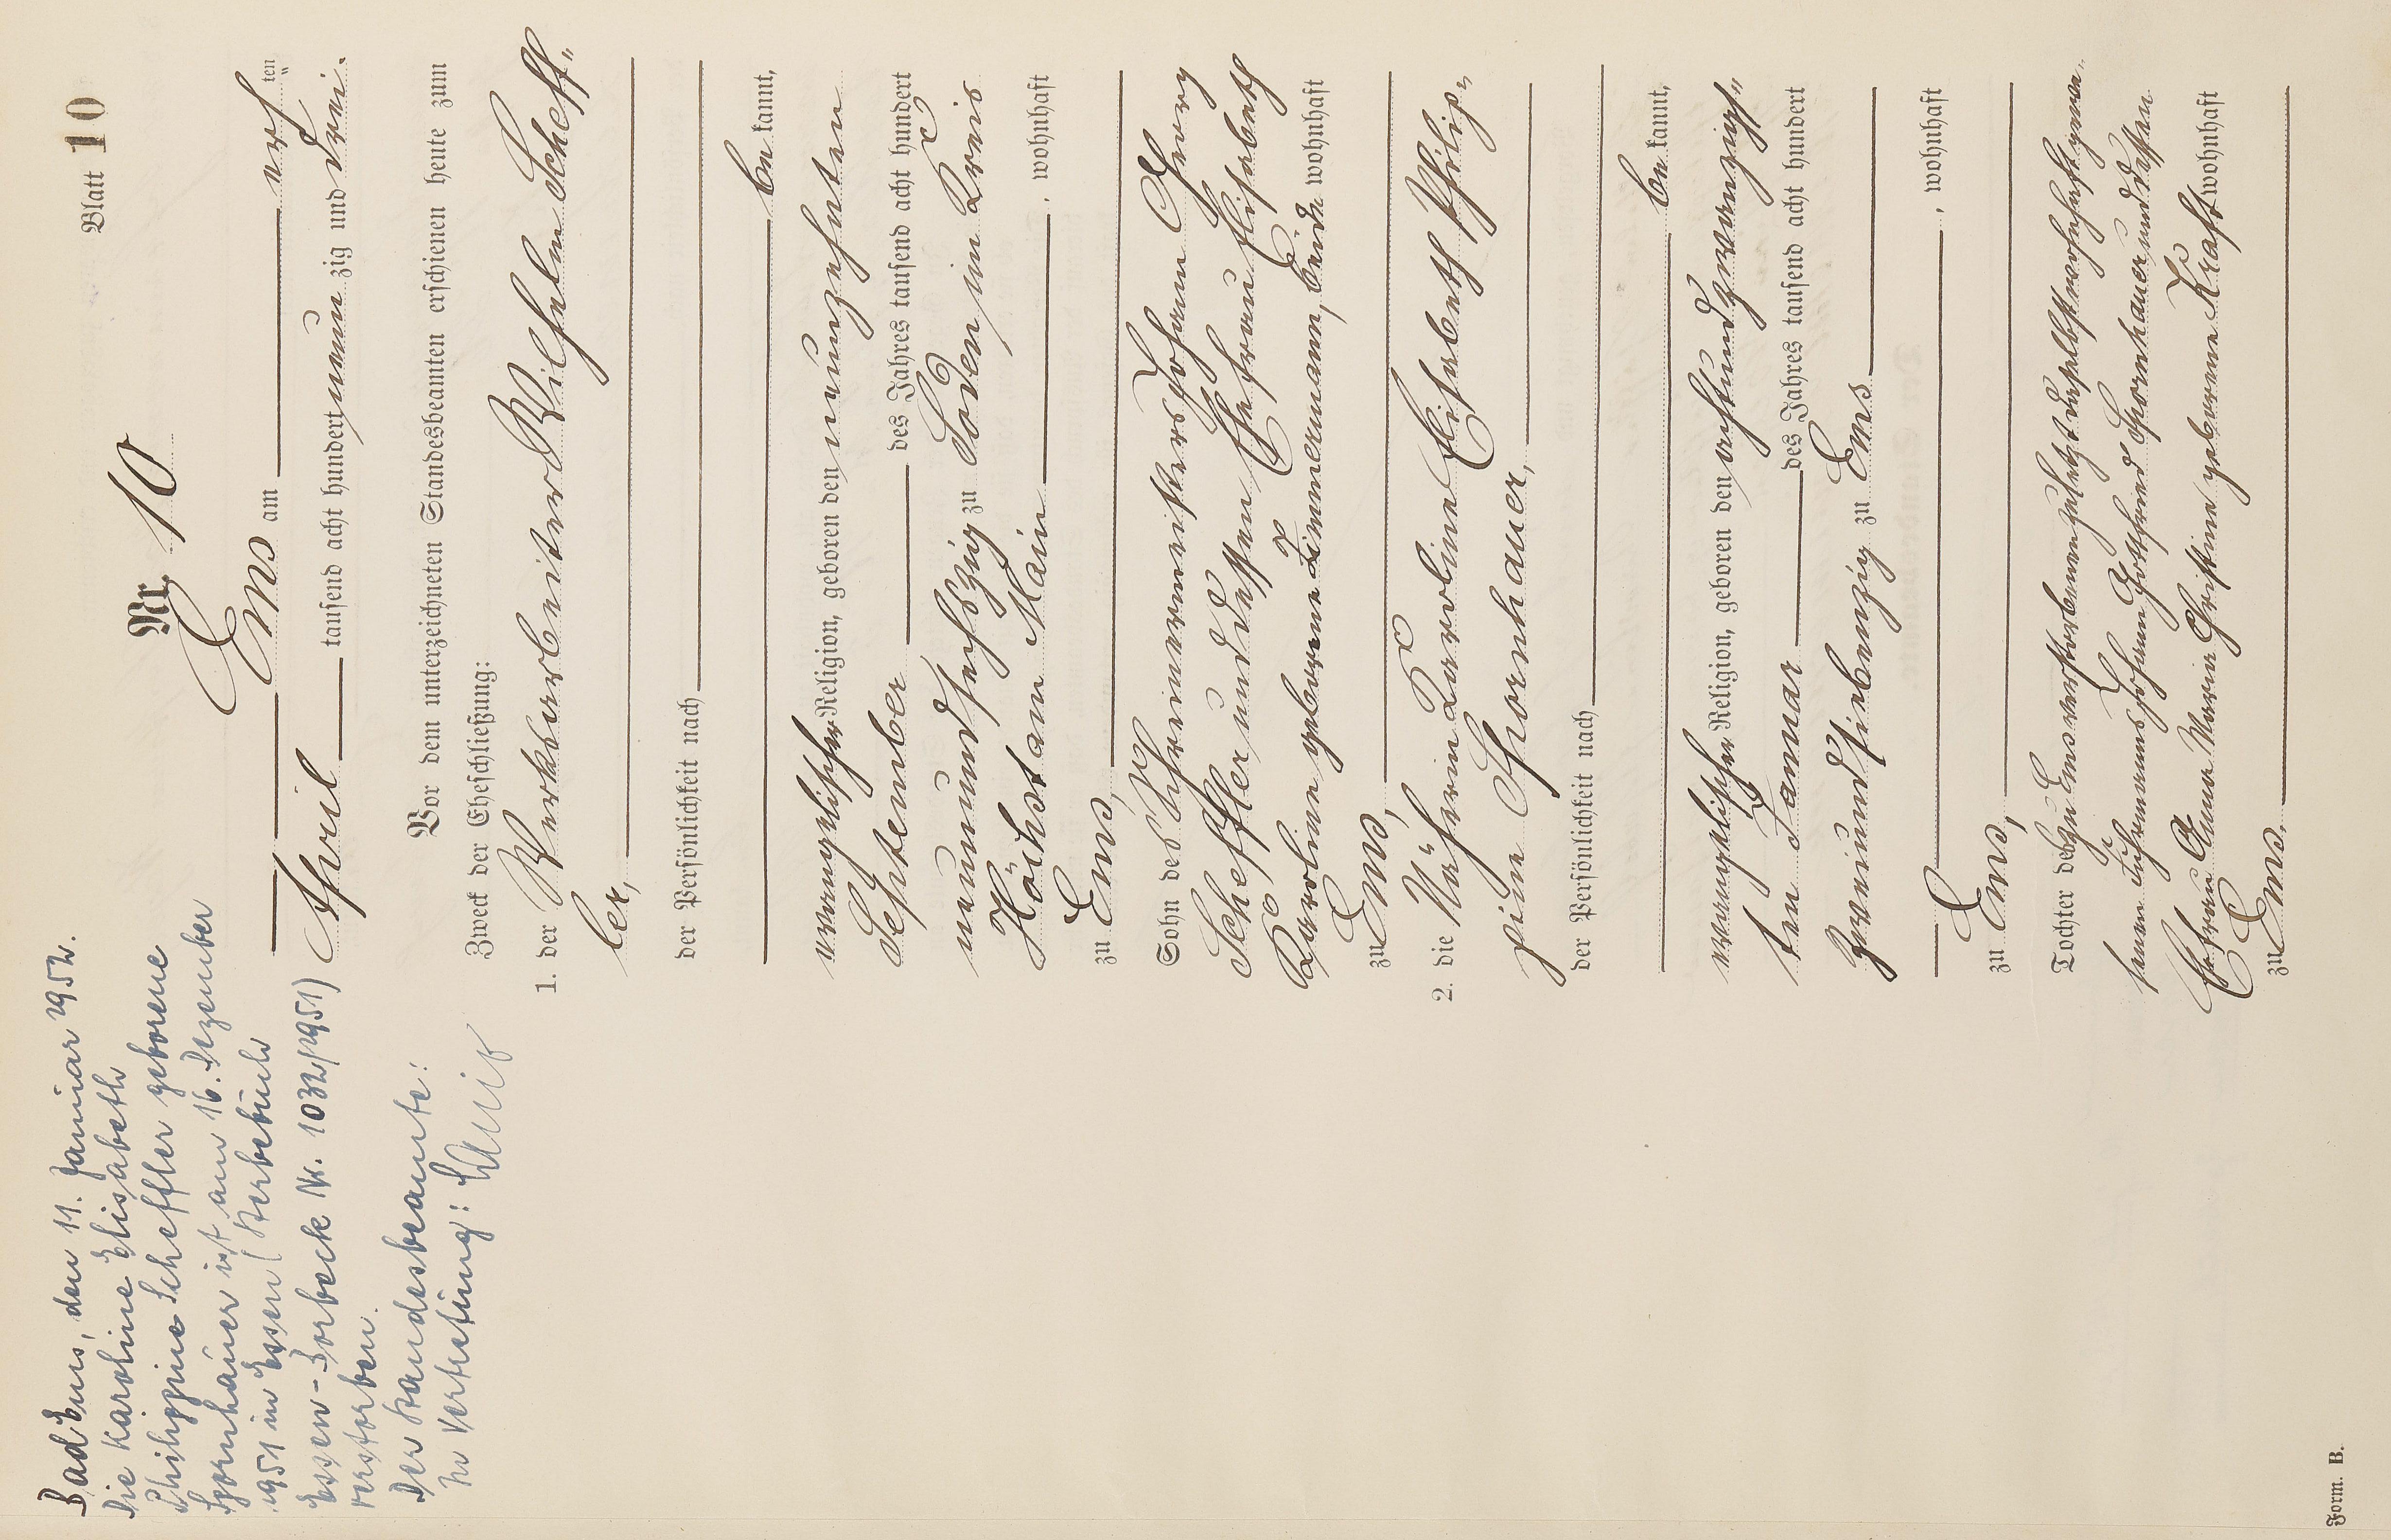 Blatt 10
Nr. 10
Ems am acht ten
April tausend acht hundert neun zig und drei.
Vor dem unterzeichneten Standesbeamten erschienen heute zum
Zweck der Eheschließung:
1. der Werksarbeiter Wilhelm Scheff„
ler,
der Persönlichkeit nach
be kannt,
evangelischer Religion, geboren den neunzehnten
September des Jahres tausend acht hundert
neunundsechszig zu Soden im Kreis
Höchst am Main, wohnhaft
zu Ems,
Sohn des Schreinermeisters Johann Georg
Scheffler und dessen Ehefrau Elisabeth
Karoline geborene Zimmermann, beide wohnhaft
zu Ems,
2. die Näherin Karoline Elisabeth Philip„
pine Spornhauer,
der Persönlichkeit nach
be kannt,
evangelischer Religion, geboren den achtundzwanzigs„
ten Januar des Jahres tausend acht hundert
zweiundsiebenzig zu Ems
, wohnhaft
zu Ems,
Tochter des zu Ems verstorbenen zuletzt daselbst wohnhaft gewe„
senen Fuhrmanns Johann Gottfried Spornhauer und dessen
Ehefrau Anna Maria Christine geborene Kraft wohnhaft
zu Ems.
Bad Ems, den 11. Januar 1952.
Die Karoline Elisabeth
Philippine Scheffler geborene
Spornhauer ist am 16. Dezember
1951 in Essen (Sterbebuch
Essen-Borbeck Nr. 1032/1951)
verstorben.
Der Standesbeamte:
In Vertretung:
Form. B.